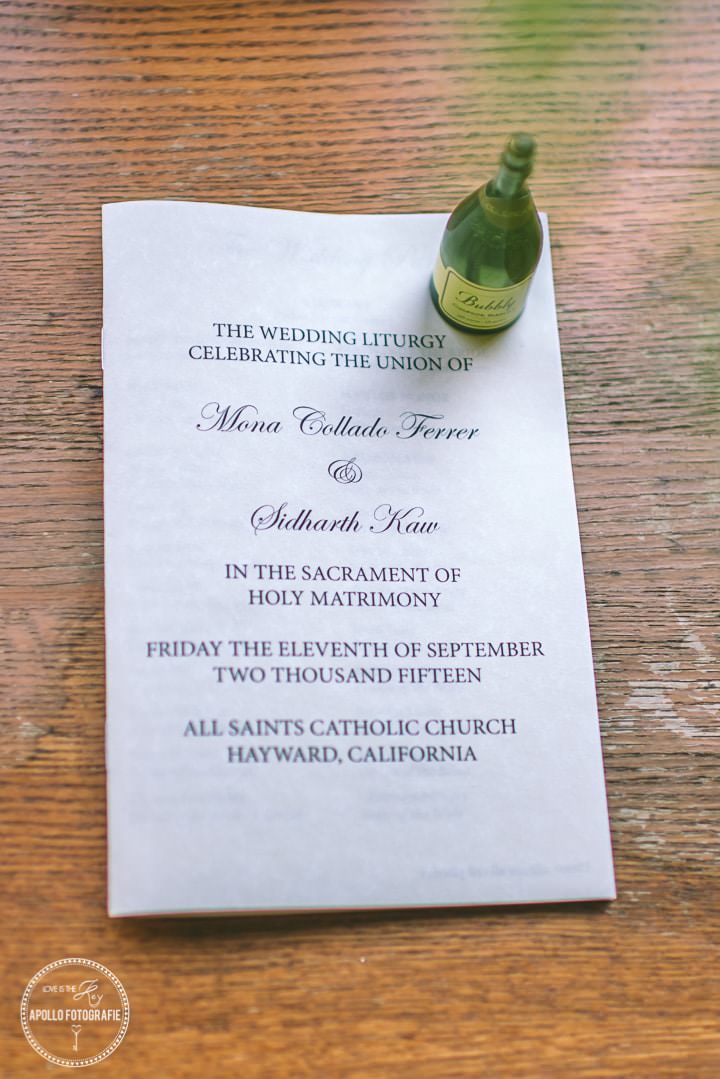 Bubbly
THE WEDDING LITURGY
CELEBRATING THE UNION OF
Mona Collado Ferrer
&
Sidharth Kaw
IN THE SACRAMENT OF
HOLY MATRIMONY
FRIDAY THE ELEVENTH OF SEPTEMBER
TWO THOUSAND FIFTEEN
ALL SAINTS CATHOLIC CHURCH
HAYWARD, CALIFORNIA
LOVE IS THE Key
APOLLO FOTOGRAFIE